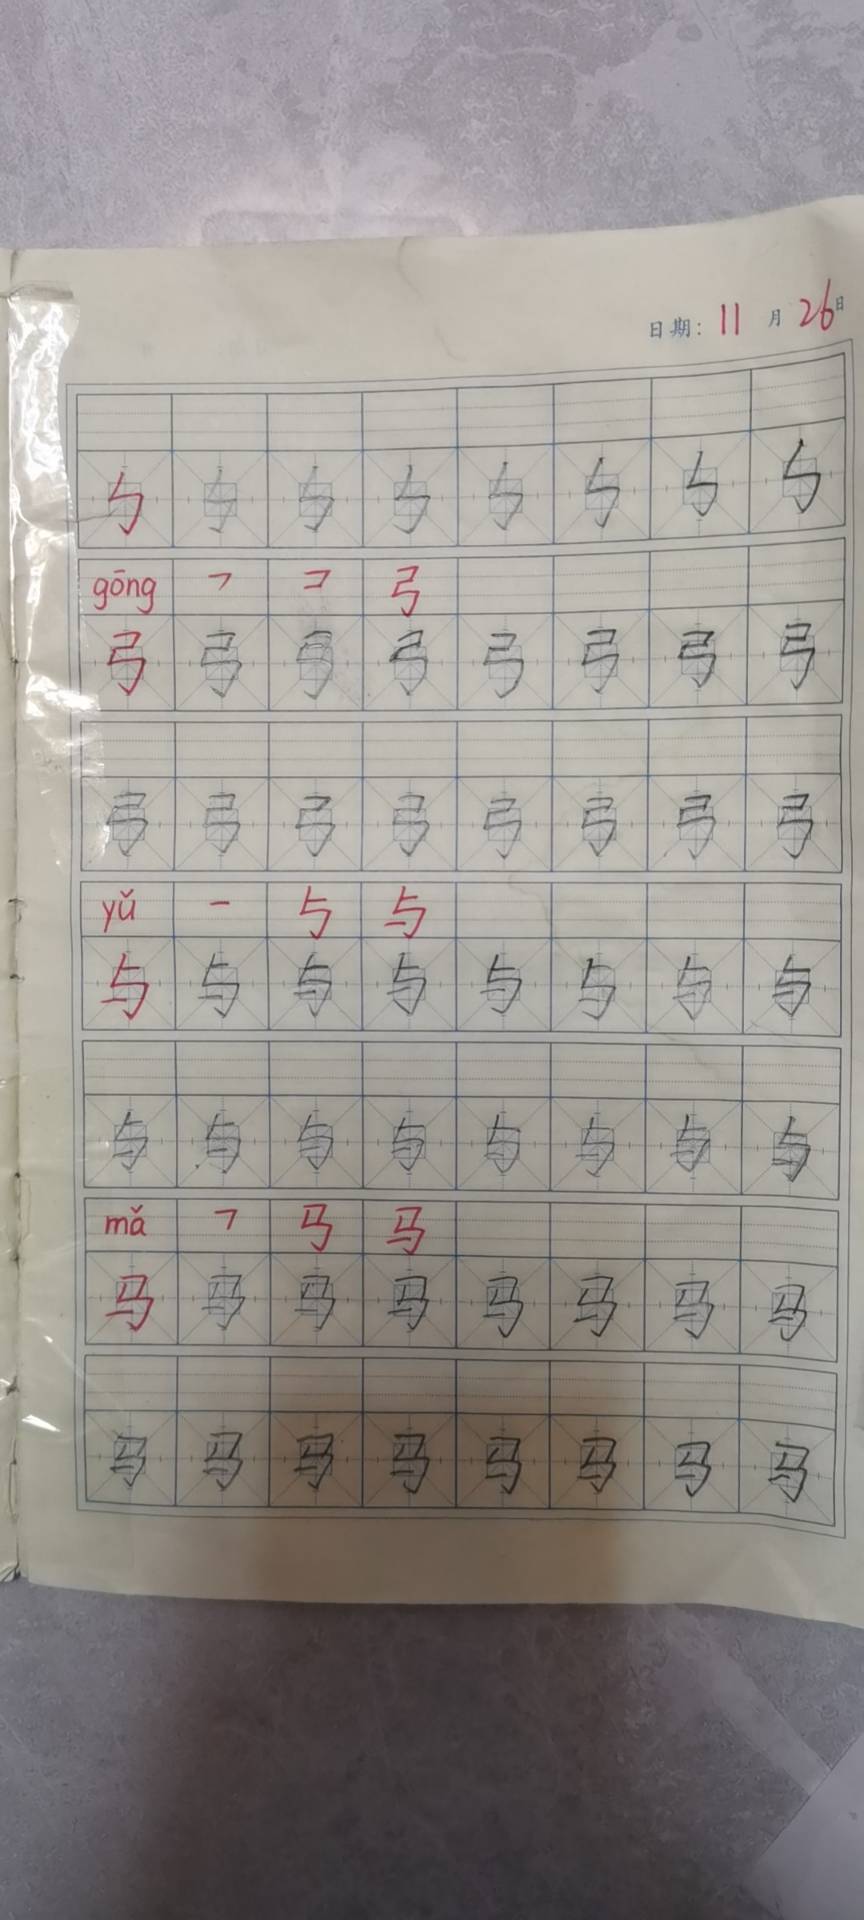 日期：11月26日
ㄣ ㄣ ㄣ ㄣ ㄣ ㄣ ㄣ ㄣ
gōng ㇕ コ 弓
弓 弓 弓 弓 弓 弓 弓 弓
弓 弓 弓 弓 弓 弓 弓 弓
yǔ 一 ㄣ 与
与 与 与 与 与 与 与 与
与 与 与 与 与 与 与 与
mǎ ㇕ 马 马
马 马 马 马 马 马 马 马
马 马 马 马 马 马 马 马